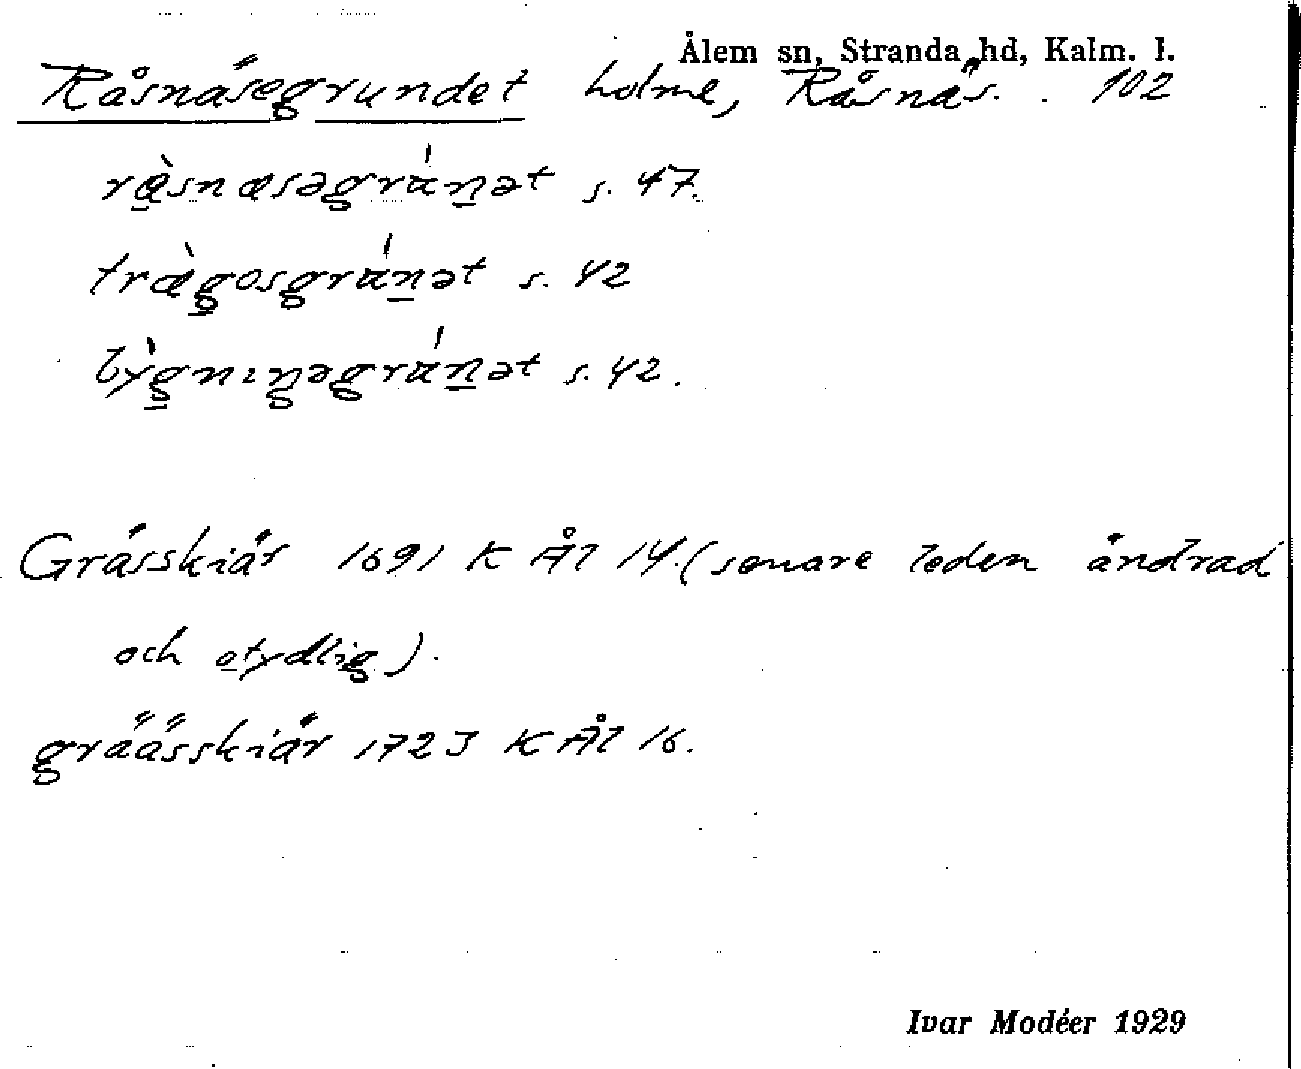 Ålem sn, Stranda hd, Kalm. l.
Råsnäsegrundet holme, Råsnäs. 102
ràsnæsəgránət s. 47.
trægosgránət s. 42
bỳgnıŋəgránət s. 42.
Grässkiär 1691 K Ål 14. (senare leden ändrad
och otydlig).
gräässkiär 1723 K Ål 16.
Ivar Modéer 1929